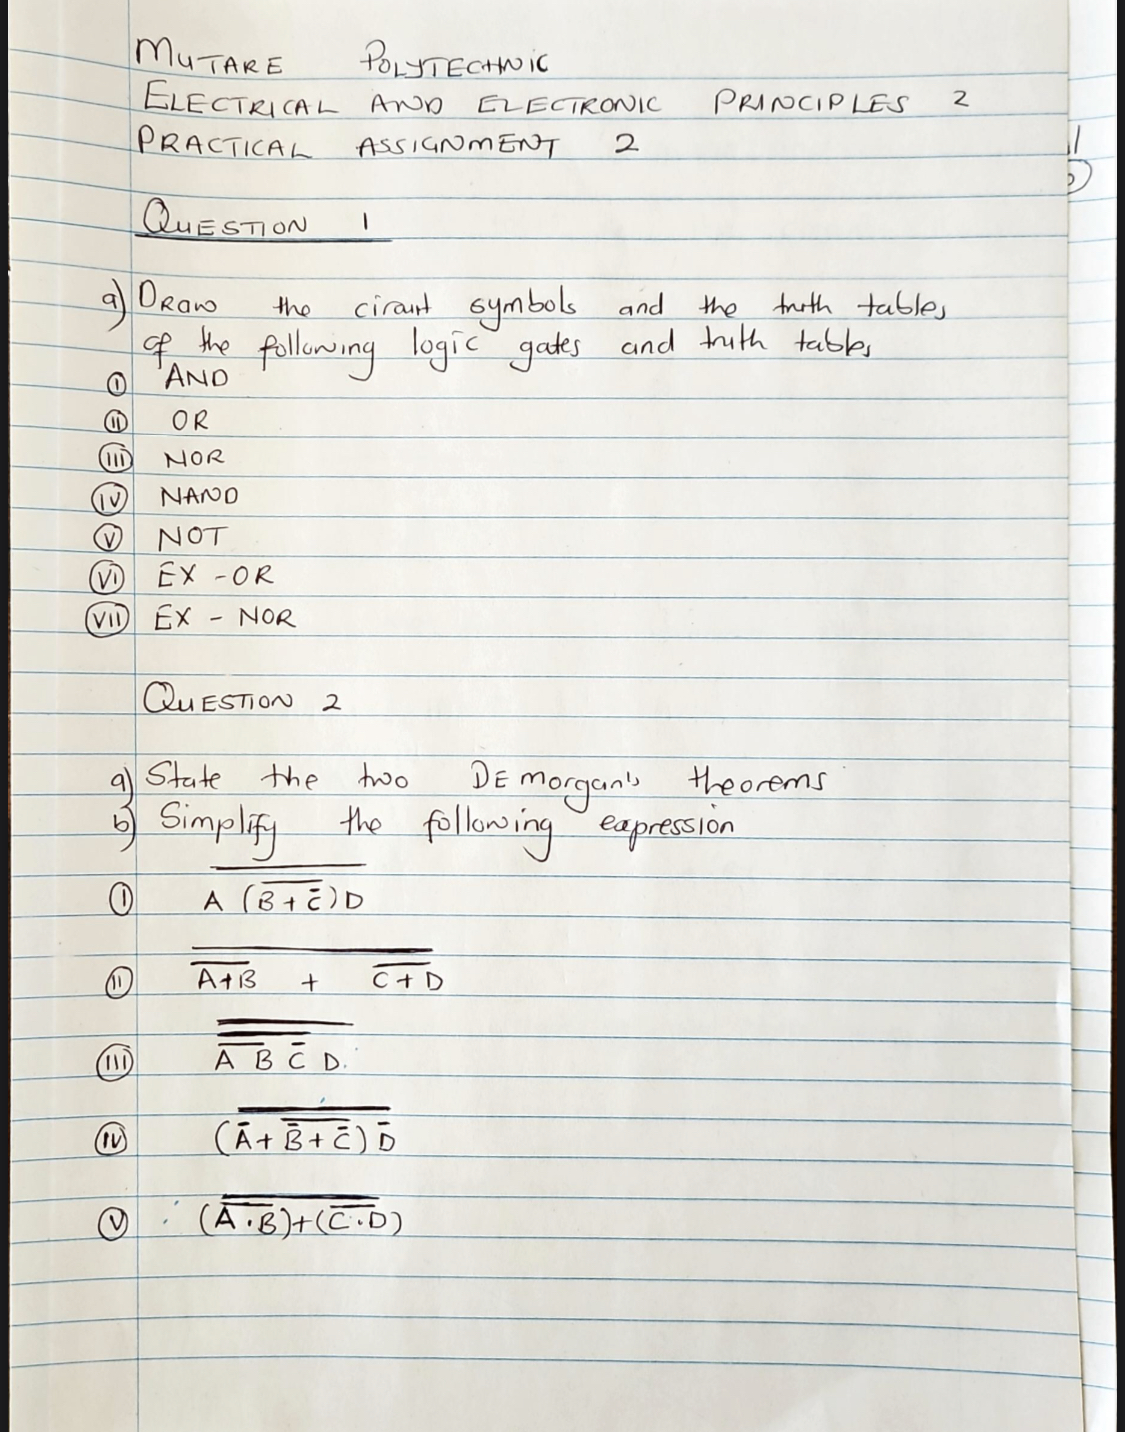 MUTARE POLYTECHNIC
ELECTRICAL AND ELECTRONIC PRINCIPLES 2
PRACTICAL ASSIGNMENT 2
QUESTION 1
a) DRaw the circuit symbols and the truth tables
of the following logic gates and truth tables
(I) AND
(II) OR
(III) NOR
(IV) NAND
(V) NOT
(VI) EX - OR
(VII) EX - NOR
QUESTION 2
a) State the two DE morgan's theorems
b) Simplify the following expression
(I) \overline{A (\overline{B + \overline{C}}) D}
(II) \overline{\overline{A+B} + \overline{C+D}}
(III) \overline{\overline{\overline{A B} \overline{C}} D}.
(IV) \overline{(\overline{A} + \overline{\overline{B} + \overline{C}}) \overline{D}}
(V) \overline{(\overline{A . B}) + (\overline{C . D})}